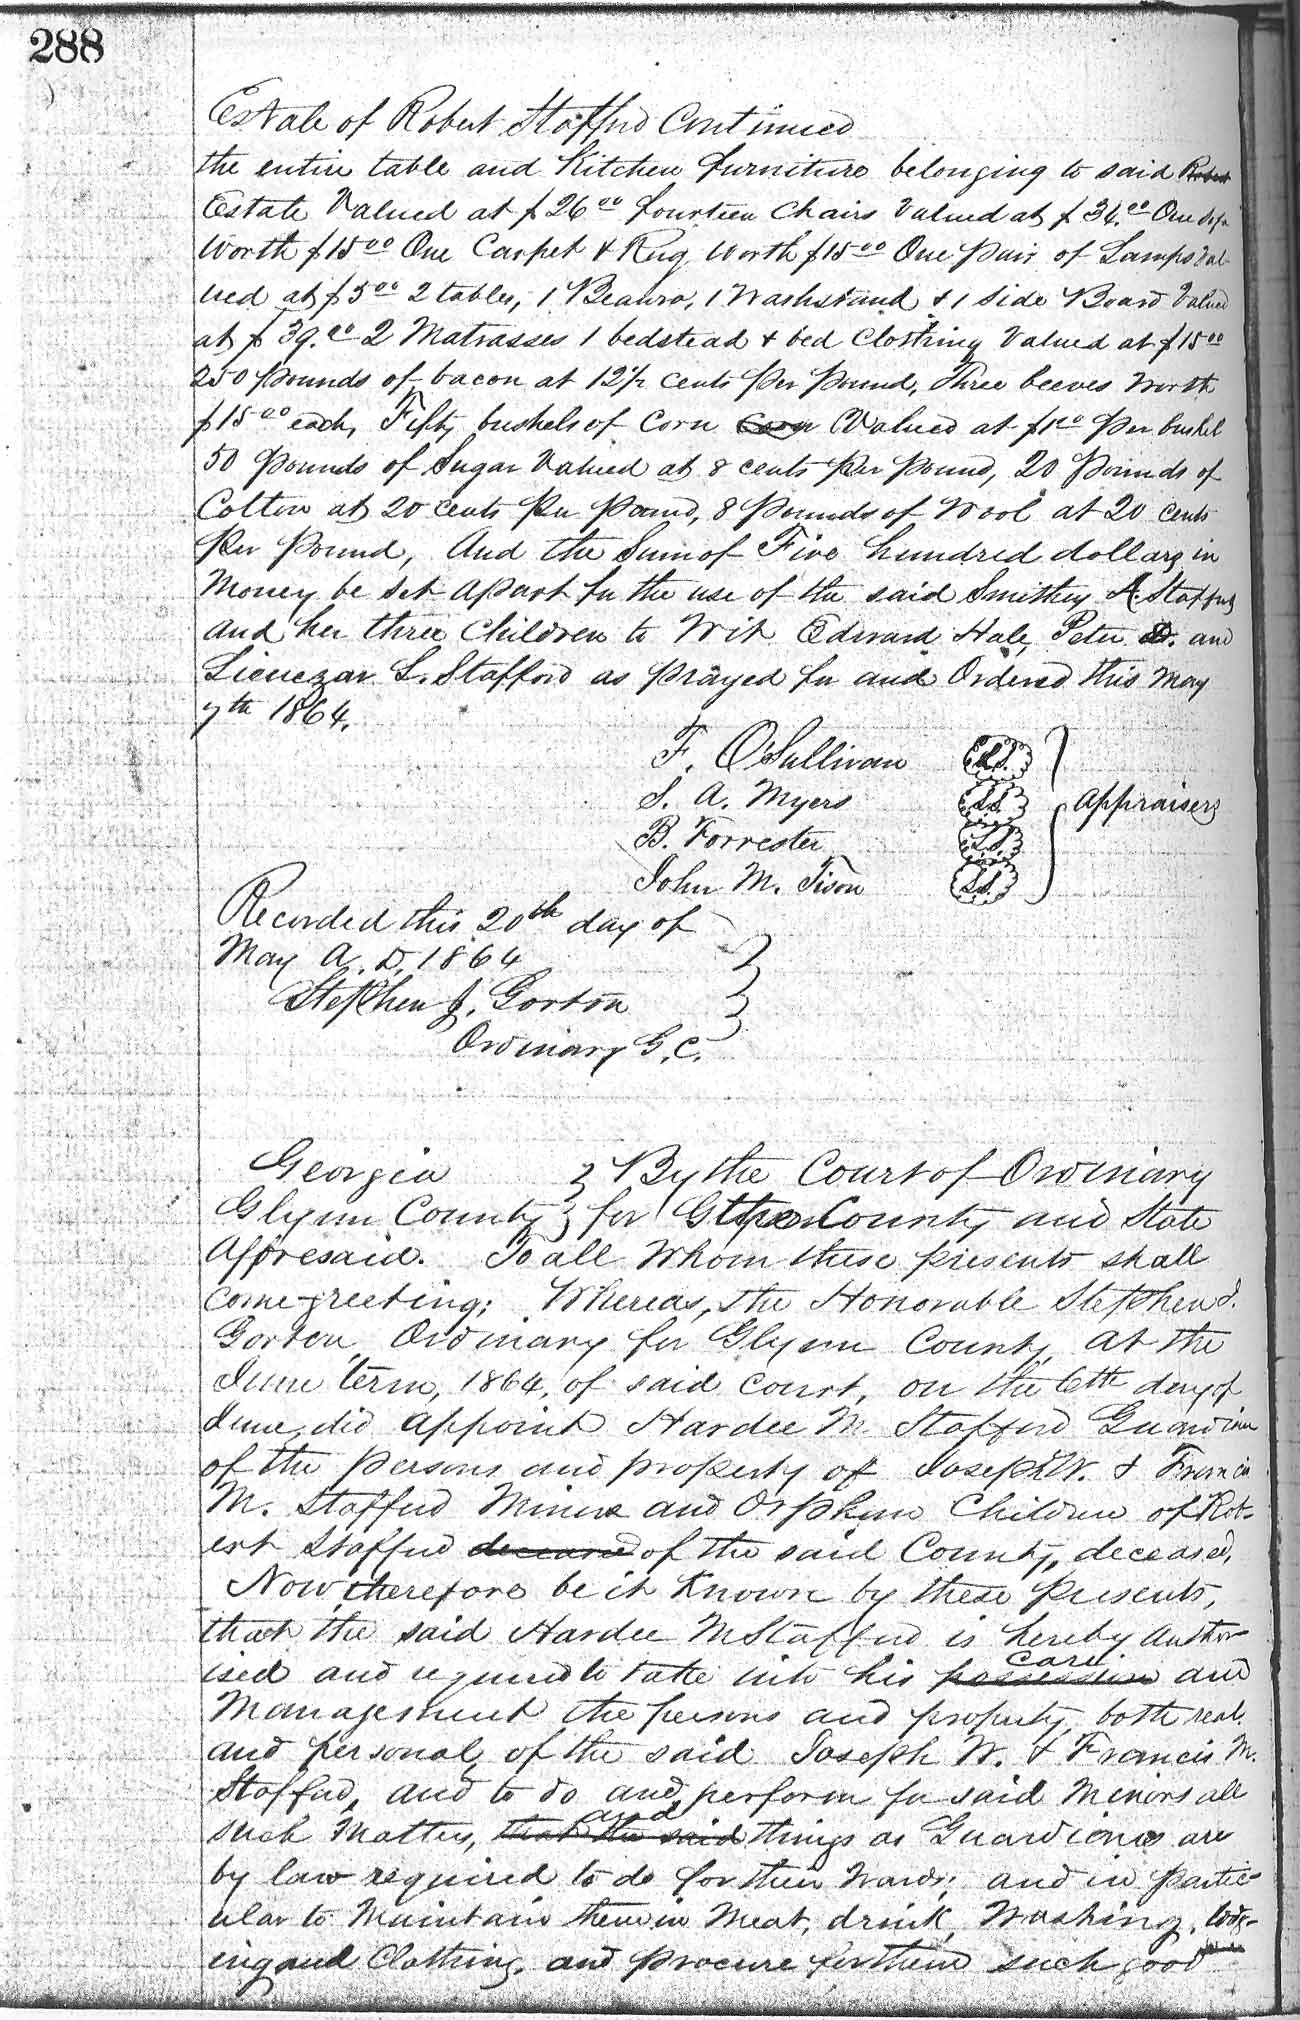 288
Estate of Robert Stafford Continued
the entire table and Kitchen furniture belonging to said Robert
Estate Valued at $26 00 fourteen Chairs Valued at $ 34.00 One
Worth $15 00 One Carpet & Rug Worth $15 00 One pair of Lamps Val-
ued at $5 00 2 tables, 1 Beauro, 1 Washstand & 1 side Board Valued
at $ 39.00 2 Matrasses 1 bedstead & bed Clothing Valued at $15 00
250 pounds of bacon at 12½ cents Per Pound, Three beeves Worth
$15 00 each, Fifty bushels of Corn Corn Valued at $1 00 Per bushel
50 pounds of Sugar Valued at 8 cents Per Pound, 20 Pounds of
Cotton at 20 cents Per Pound, 8 Pounds of Wool at 20 cents
Per Pound, And the Sum of Five hundred dollars in
Money be set apart for the use of the said Smithey A. Stafford
and her three Children to Wit Edward Hale, Peter D. and
L. Stafford as prayed for and Ordered this May
7th 1864.
F. O'Sullivan L.S.
S. A. Myers L.S. Appraisers
B. Forrester L.S.
John M. Tison L.S.
Recorded this 20th day of
May A.D. 1864
Stephen J. Gorton
Ordinary G.C.
Georgia } By the Court of Ordinary
Glynn County } for Glynn County and State
Afforesaid. To all Whom these presents shall
come greeting; Whereas, the Honorable Stephen J.
Gorton, Ordinary for Glynn County, at the
June term, 1864, of said Court, on the 6th day of
June, did appoint Hardee M. Stafford Guardian
of the persons and property of Joseph W. & Francis
M. Stafford Minors and Orphan Children of Rob-
ert Stafford deceased of the said County, deceased,
Now therefore be it Known by these presents,
that the said Hardee M Stafford is hereby author-
ised and required to take into his possession care and
Management the persons and property, both real
and personal, of the said Joseph W. & Francis M.
Stafford, and to do and perform for said Minors all
such Matters, that the said and things as Guardians are
by law required to do for their Wards; and in partic-
ular to Maintain them in Meat, drink, Washing, lodg-
ing and Clothing, and procure for them such good